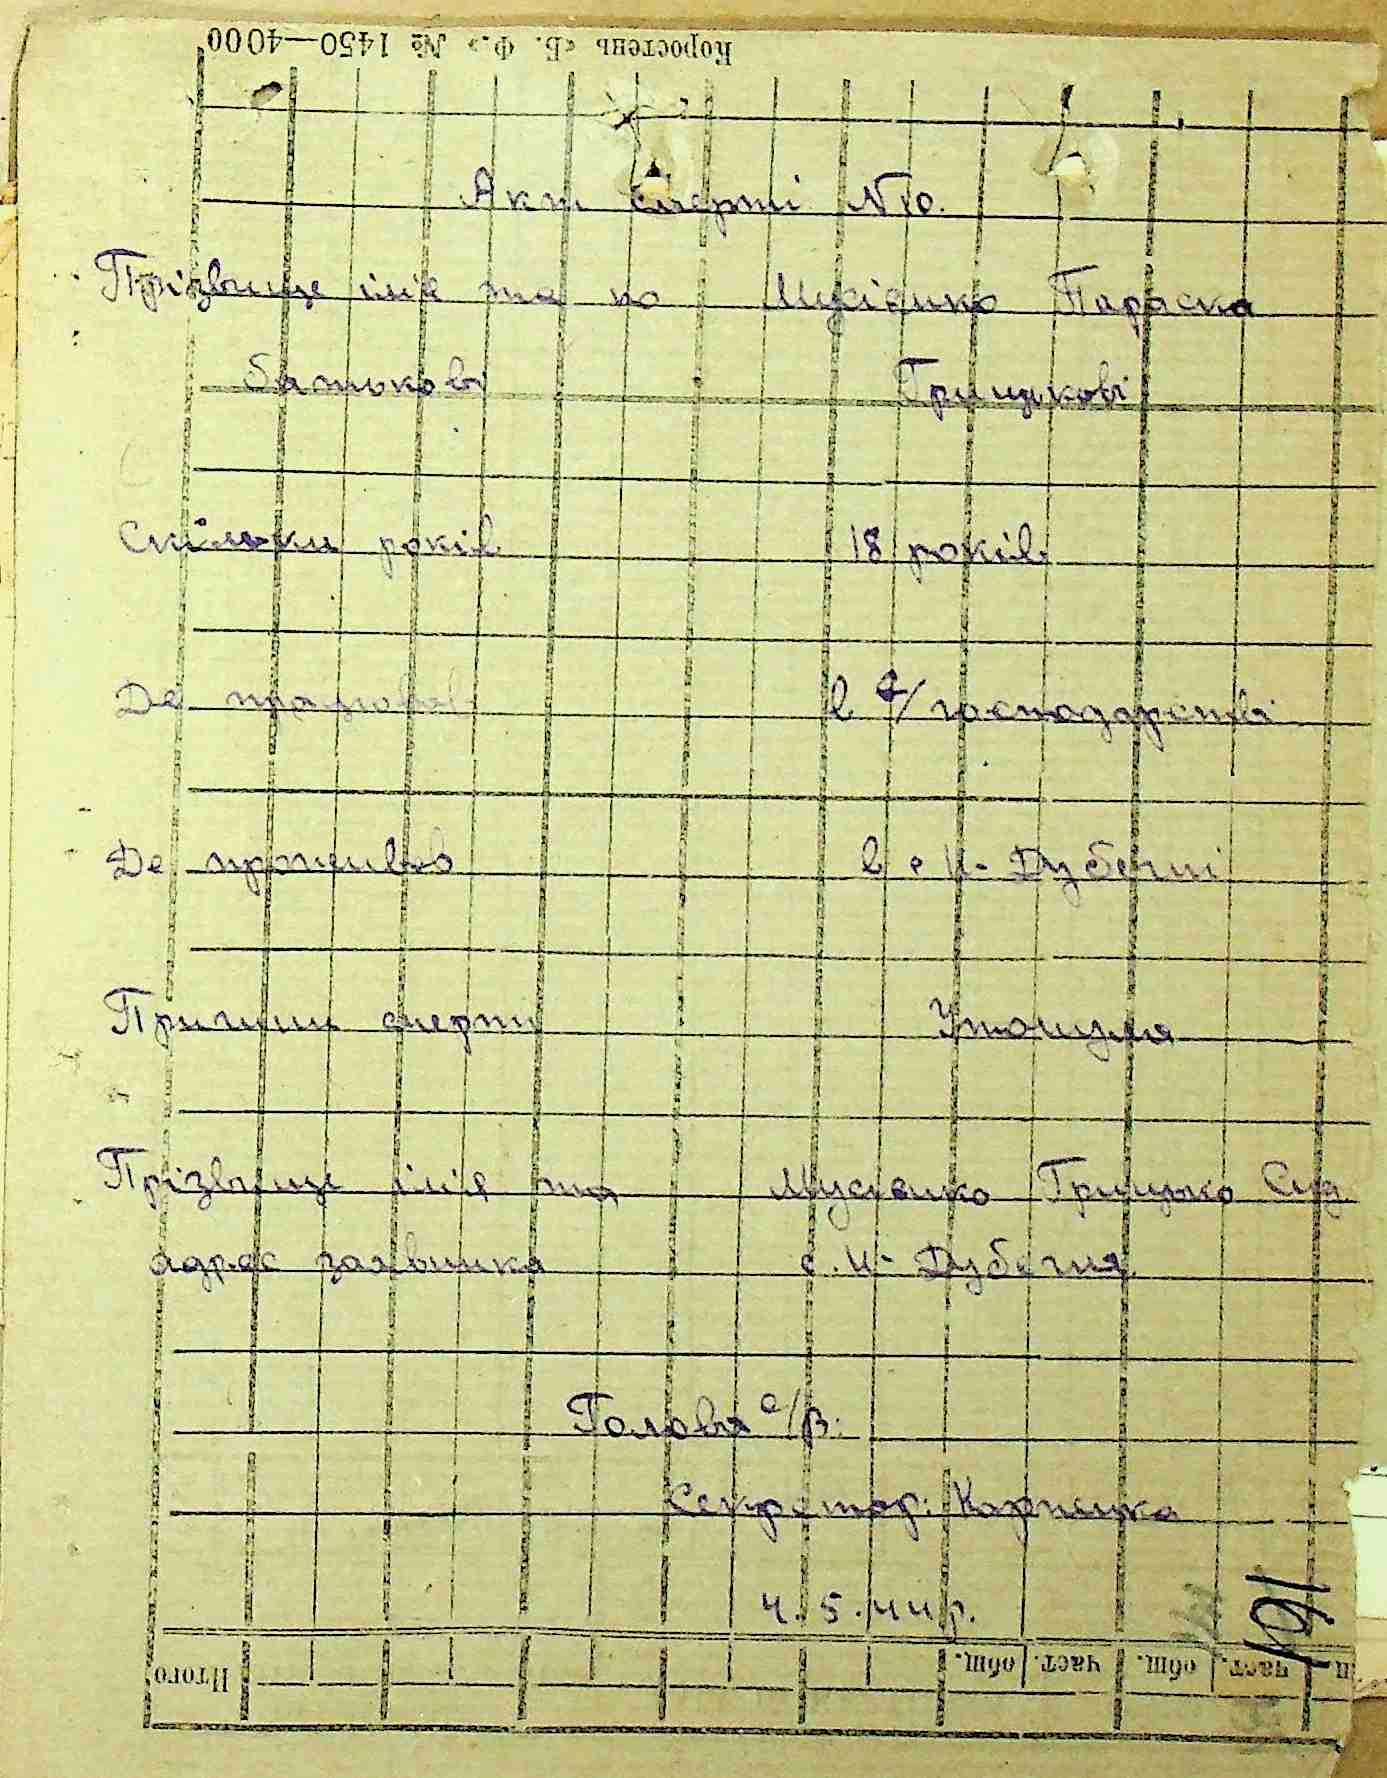 Коростень «Б. Ф.» № 1450—4000
Акт смерті №10.
Прізвище ім'я та по Мусієнко Параска
батькові Грицькові
Скільки років 18 років
Де працював в с/господарстві
Де проживав в с Н-Дубечні
Причини смерті Утонула
Прізвище ім'я та Мусієнко Грицько Сид.
адрес заявника с. Н-Дубечня
Голова с/р:
Секретар:
4.5.44р.
161
Итого общ. част. общ. част.